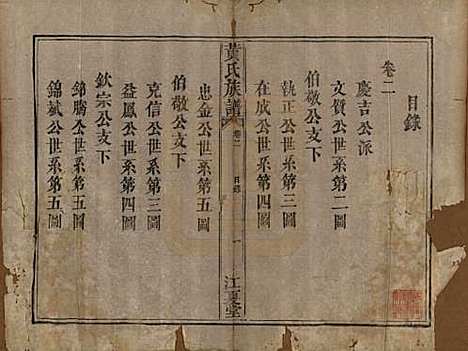 卷二
目錄
慶吉公派
文質公世系第二圖
伯敬公支下
執正公世系第三圖
在成公世系第四圖
黃氏族譜
卷二
目錄
一
江夏堂
忠金公世系第五圖
伯敬公支下
克信公世系第三圖
益鳳公世系第四圖
欽宗公支下
錦騰公世系第五圖
錦斌公世系第五圖